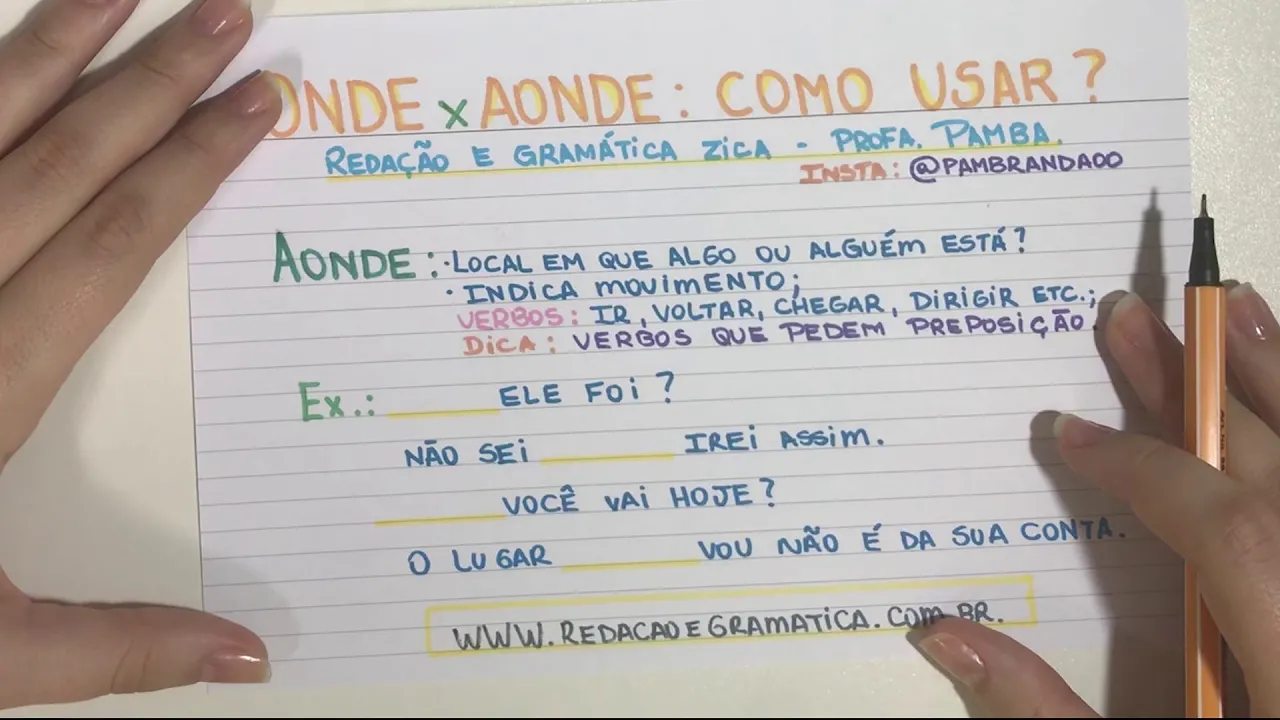 ONDE x AONDE: COMO USAR?
REDAÇÃO E GRAMÁTICA ZICA - PROFA. PAMBA.
INSTA: @PAMBRANDAOO
AONDE: · LOCAL EM QUE ALGO OU ALGUÉM ESTÁ?
· INDICA MOVIMENTO;
VERBOS: IR, VOLTAR, CHEGAR, DIRIGIR ETC.;
DICA: VERBOS QUE PEDEM PREPOSIÇÃO.
Ex.: ______ ELE FOI?
NÃO SEI ______ IREI ASSIM.
______ VOCÊ VAI HOJE?
O LUGAR ______ VOU NÃO É DA SUA CONTA.
WWW.REDACAOEGRAMATICA.COM.BR.